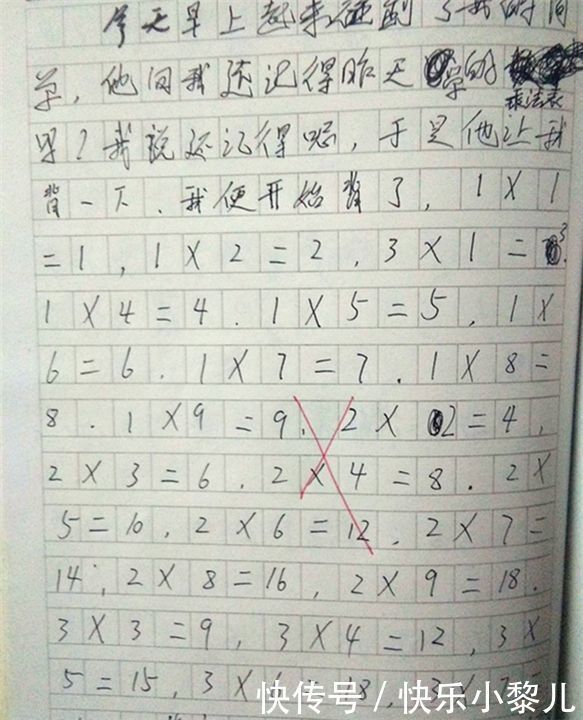 今天早上起来碰到了我的同
学，他问我还记得昨天学的
乘法表
吗？我说还记得呢，于是他让我
背一下，我便开始背了，1×1
=1，1×2=2，3×1=3.
1×4=4.1×5=5，1×
6=6.1×7=7.1×8=
8.1×9=9.2×2=4，
2×3=6.2×4=8.2×
5=10，2×6=12，2×7=
14，2×8=16，2×9=18.
3×3=9，3×4=12，3×
5=15，3×
快传号/快乐小黎儿